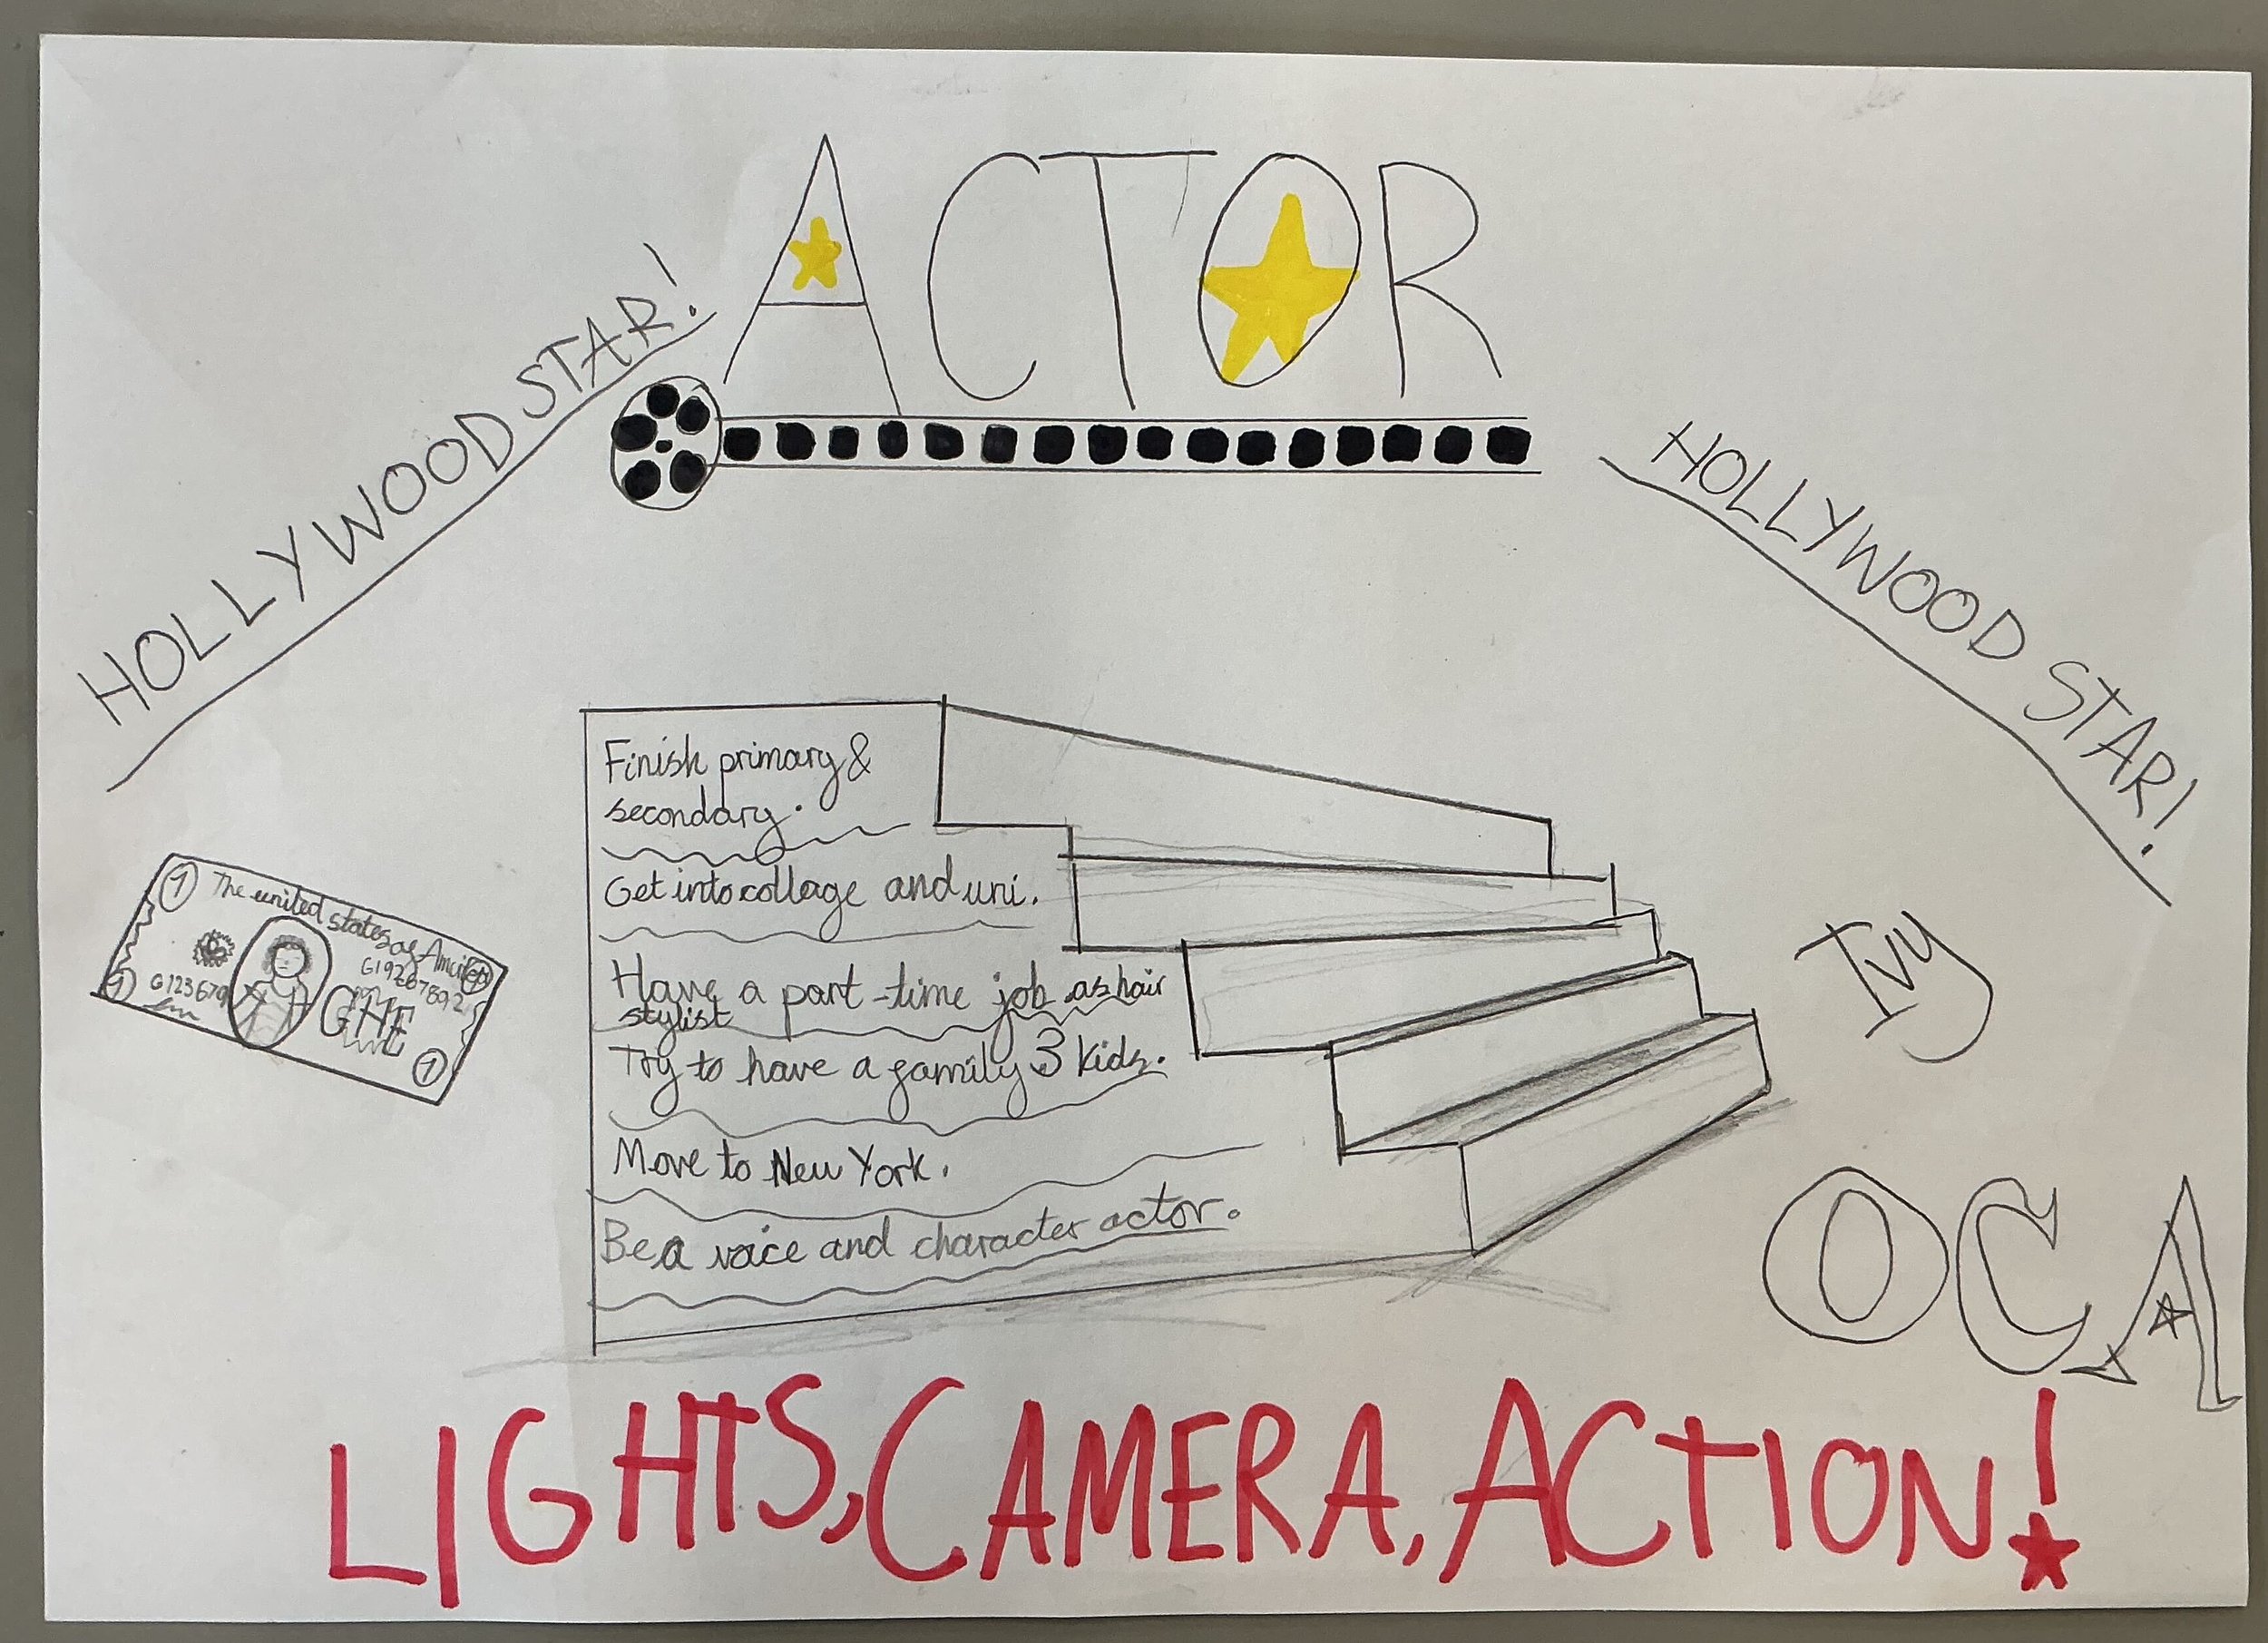 ACTOR
HOLLYWOOD STAR!
HOLLYWOOD STAR!
Finish primary &
secondary.
Get into collage and uni.
Have a part-time job as hair
stylist
Try to have a family 3 kids.
Move to New York.
Be a voice and character actor.
1 The united states of America
G19267892
G123679
GHE
1
1
Ivy
OCA
LIGHTS, CAMERA, ACTION!